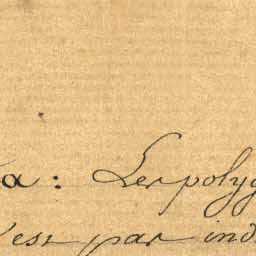 a : Les polyg
est par ind